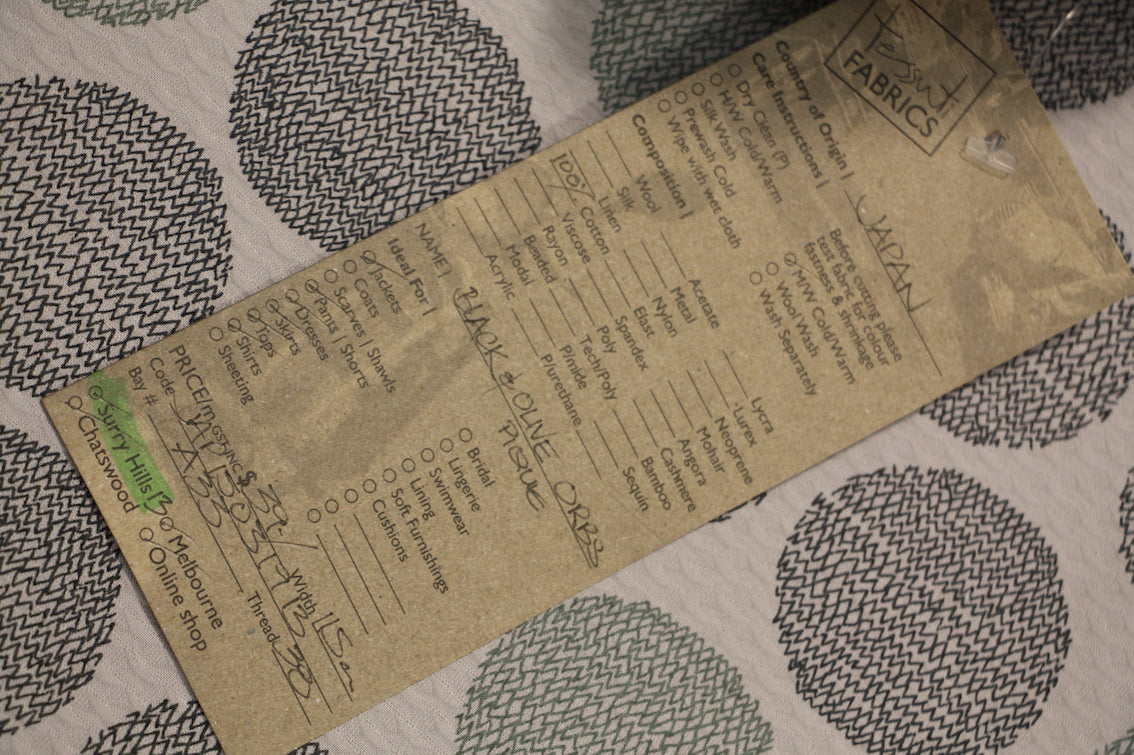 Tessuti
FABRICS
Country of Origin | JAPAN
Care Instructions |
Before cutting please
test fabric for colour
fastness & shrinkage
Dry Clean (P)
H/W Cold/Warm
Silk Wash
Prewash Cold
Wipe with wet cloth
M/W Cold/Warm
Wool Wash
Wash Separately
Composition |
Wool
Silk
Linen
100% Cotton
Viscose
Rayon
Beaded
Modal
Acrylic
Acetate
Metal
Nylon
Elast
Spandex
Poly
Tech/Poly
P/mide
P/urethane
Lycra
Lurex
Neoprene
Mohair
Angora
Cashmere
Bamboo
Sequin
NAME | BLACK & OLIVE ORBS
PIQUE
Ideal For |
Jackets
Coats
Scarves | Shawls
Pants | Shorts
Dresses
Skirts
Tops
Shirts
Sheeting
Bridal
Lingerie
Swimwear
Lining
Soft Furnishings
Cushions
PRICE/m GST INC $ 39/ Width 115cm
Code
Bay # A33 Thread 38
Surry Hills 13 Melbourne
Chatswood Online shop